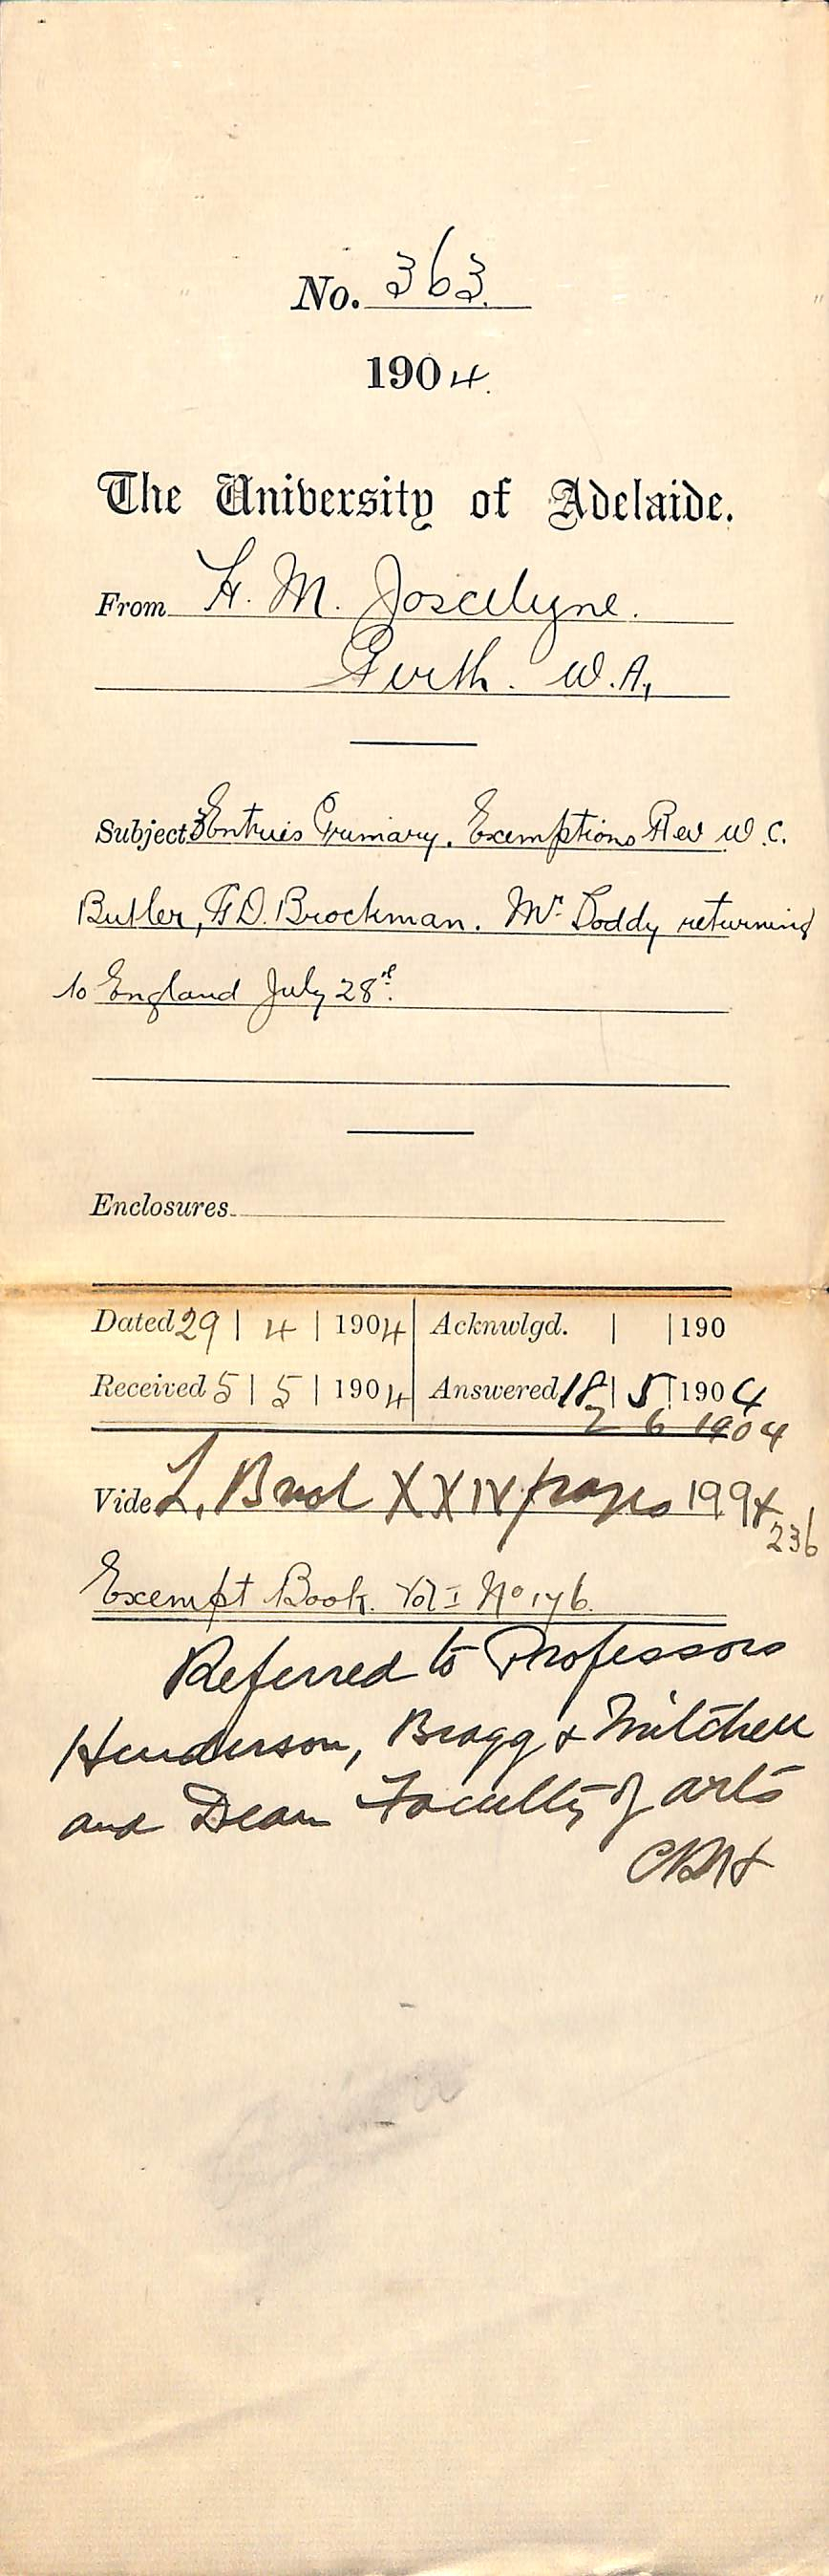 No. 363.
1904.
The University of Adelaide.
From H. M. Joscelyne.
Perth. W.A,
Subject Entries Primary. Exemptions Rev W.C.
Butler, F.D. Brockman. Mr Doddy returning
to England July 28d.
Enclosures
Dated 29 | 4 | 1904 Acknwlgd. | | 190
Received 5 | 5 | 1904 Answered 18 | 5 | 1904
7 6 1904
Vide L. Book XXIV pages 199 &
236
Exempt Book. Vol I No 176.
Referred to Professors
Henderson, Bragg & Mitchell
and Dean Faculty of arts